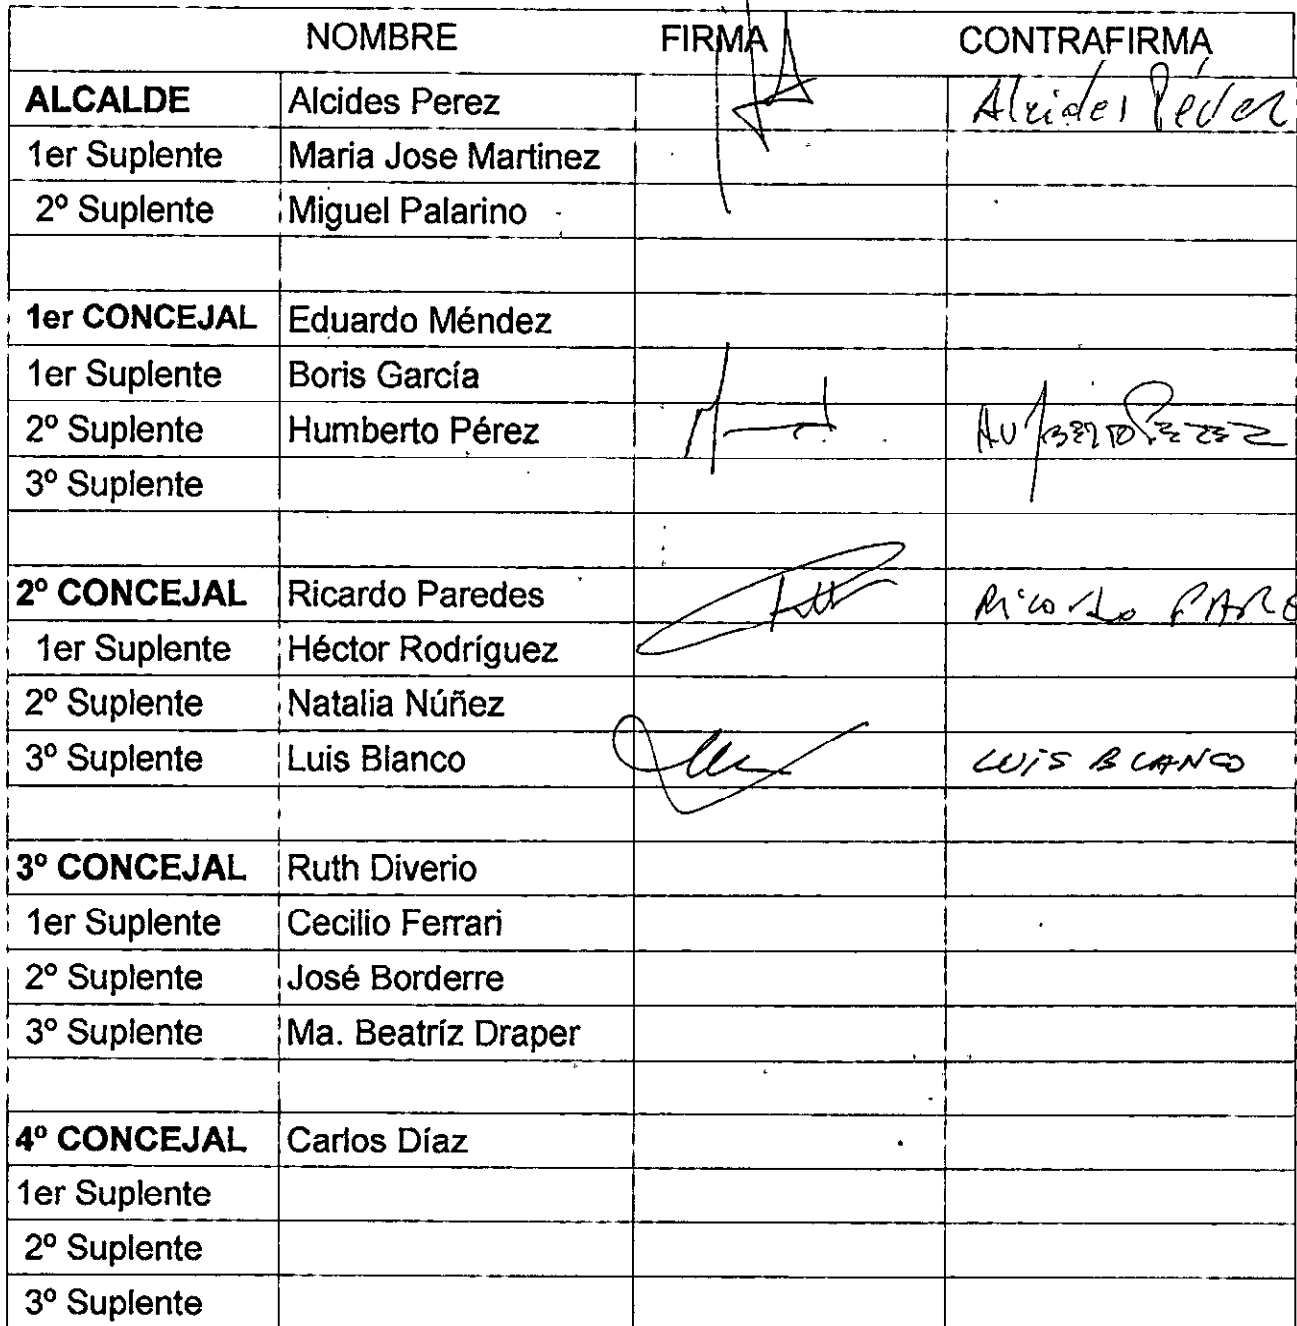 NOMBRE FIRMA CONTRAFIRMA
ALCALDE Alcides Perez Alcides Pérez
1er Suplente Maria Jose Martinez
2º Suplente Miguel Palarino
1er CONCEJAL Eduardo Méndez
1er Suplente Boris García
2º Suplente Humberto Pérez
3º Suplente
2º CONCEJAL Ricardo Paredes Ricardo PARE
1er Suplente Héctor Rodríguez
2º Suplente Natalia Núñez
3º Suplente Luis Blanco LUIS BLANCO
3º CONCEJAL Ruth Diverio
1er Suplente Cecilio Ferrari
2º Suplente José Borderre
3º Suplente Ma. Beatríz Draper
4º CONCEJAL Carlos Díaz
1er Suplente
2º Suplente
3º Suplente